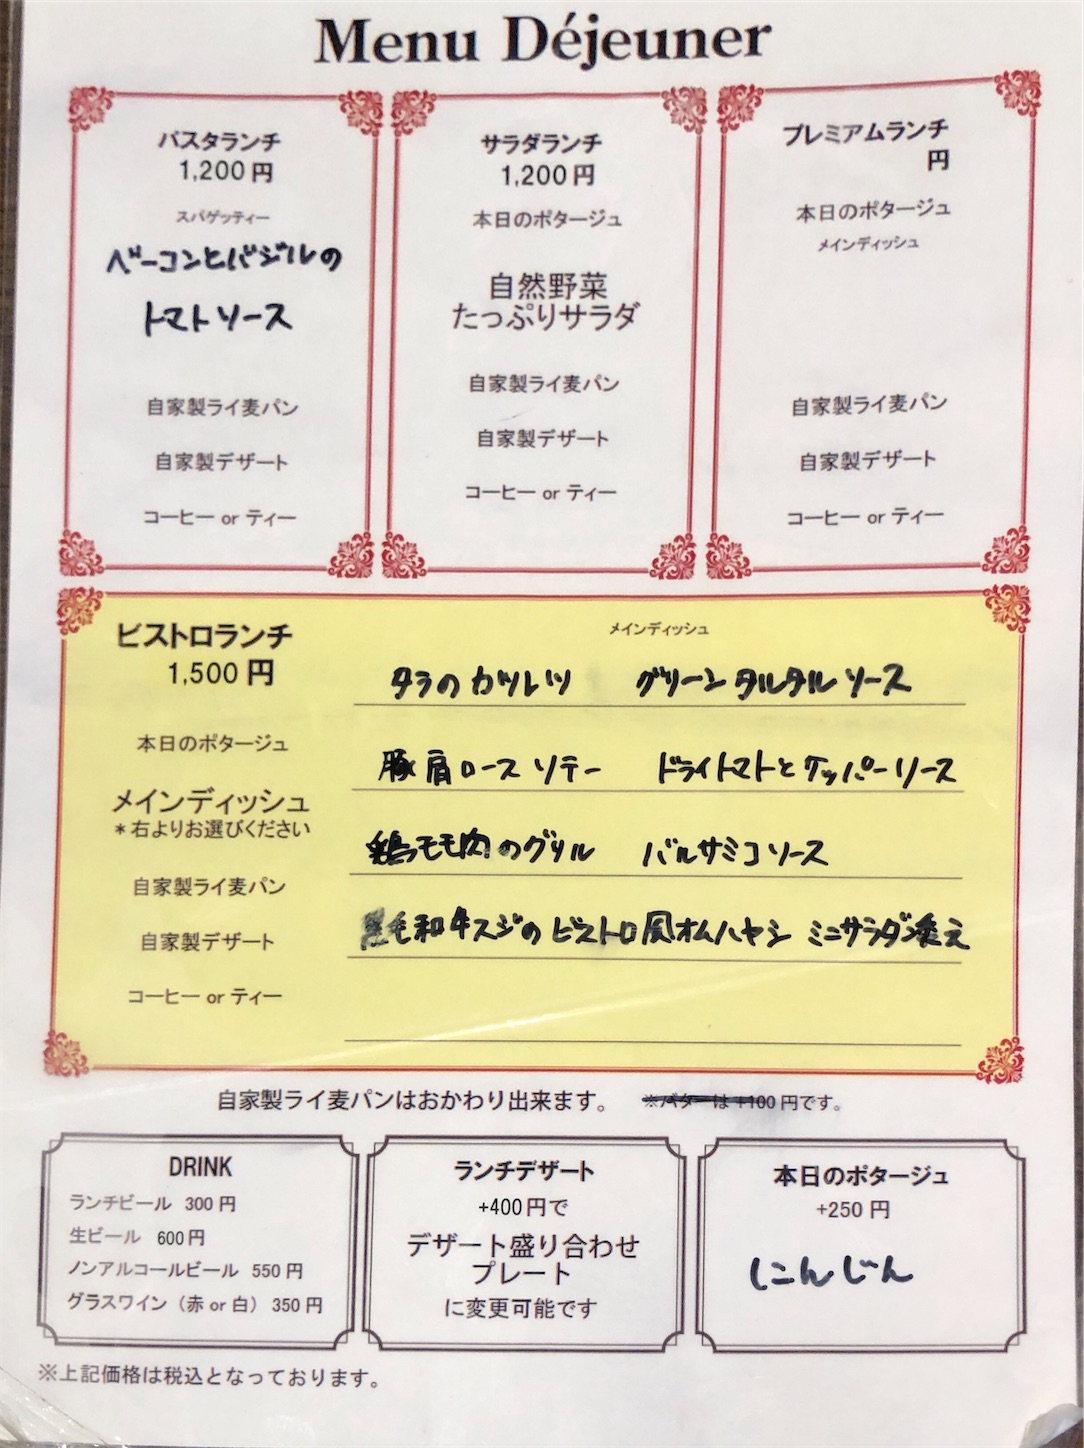 Menu Déjeuner
パスタランチ
1,200円
スパゲッティー
ベーコンとバジルの
トマトソース
自家製ライ麦パン
自家製デザート
コーヒー or ティー
サラダランチ
1,200円
本日のポタージュ
自然野菜
たっぷりサラダ
自家製ライ麦パン
自家製デザート
コーヒー or ティー
プレミアムランチ
円
本日のポタージュ
メインディッシュ
自家製ライ麦パン
自家製デザート
コーヒー or ティー
ビストロランチ
1,500円
本日のポタージュ
メインディッシュ
*右よりお選びください
自家製ライ麦パン
自家製デザート
コーヒー or ティー
メインディッシュ
タラのカツレツ グリーンタルタルソース
豚肩ロースソテー ドライトマトとケッパーソース
鶏モモ肉のグリル バルサミコソース
黒毛和牛スジのビストロ風オムハヤシ ミニサラダ添え
自家製ライ麦パンはおかわり出来ます。 ※バターは+100円です。
DRINK
ランチビール 300円
生ビール 600円
ノンアルコールビール 550円
グラスワイン（赤 or 白） 350円
ランチデザート
+400円で
デザート盛り合わせ
プレート
に変更可能です
本日のポタージュ
+250円
にんじん
※上記価格は税込となっております。